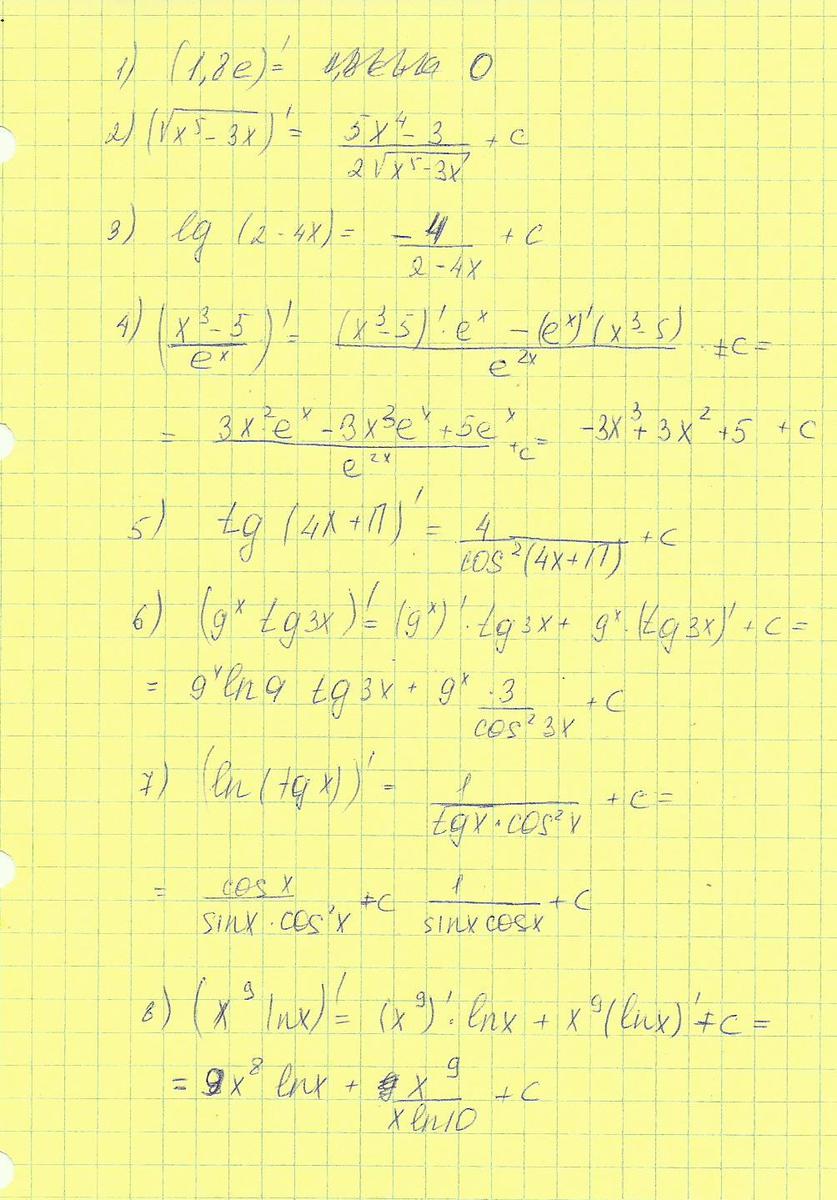 1) (1,8e)' = 0
2) (√(x⁵ - 3x))' = (5x⁴ - 3)/(2√(x⁵ - 3x)) + C
3) lg (2 - 4x) = -4/(2 - 4x) + C
4) ((x³ - 5)/eˣ)' = ((x³ - 5)' · eˣ - (eˣ)' (x³ - 5))/e²ˣ + C =
= (3x² eˣ - 3x³eˣ + 5eˣ)/e²ˣ + C = -3x³ + 3x² + 5 + C
5) tg (4x + π)' = 4/(cos² (4x + π)) + C
6) (9ˣ tg 3x)' = (9ˣ)' · tg 3x + 9ˣ · (tg 3x)' + C =
= 9ˣ ln 9 tg 3x + 9ˣ · 3/(cos² 3x) + C
7) (ln (tg x))' = 1/(tg x · cos² x) + C =
= cos x/(sin x · cos² x) + C 1/(sin x cos x) + C
8) (x⁹ ln x)' = (x⁹)' · ln x + x⁹ (ln x)' + C =
= 9x⁸ ln x + x⁹/(x ln 10) + C